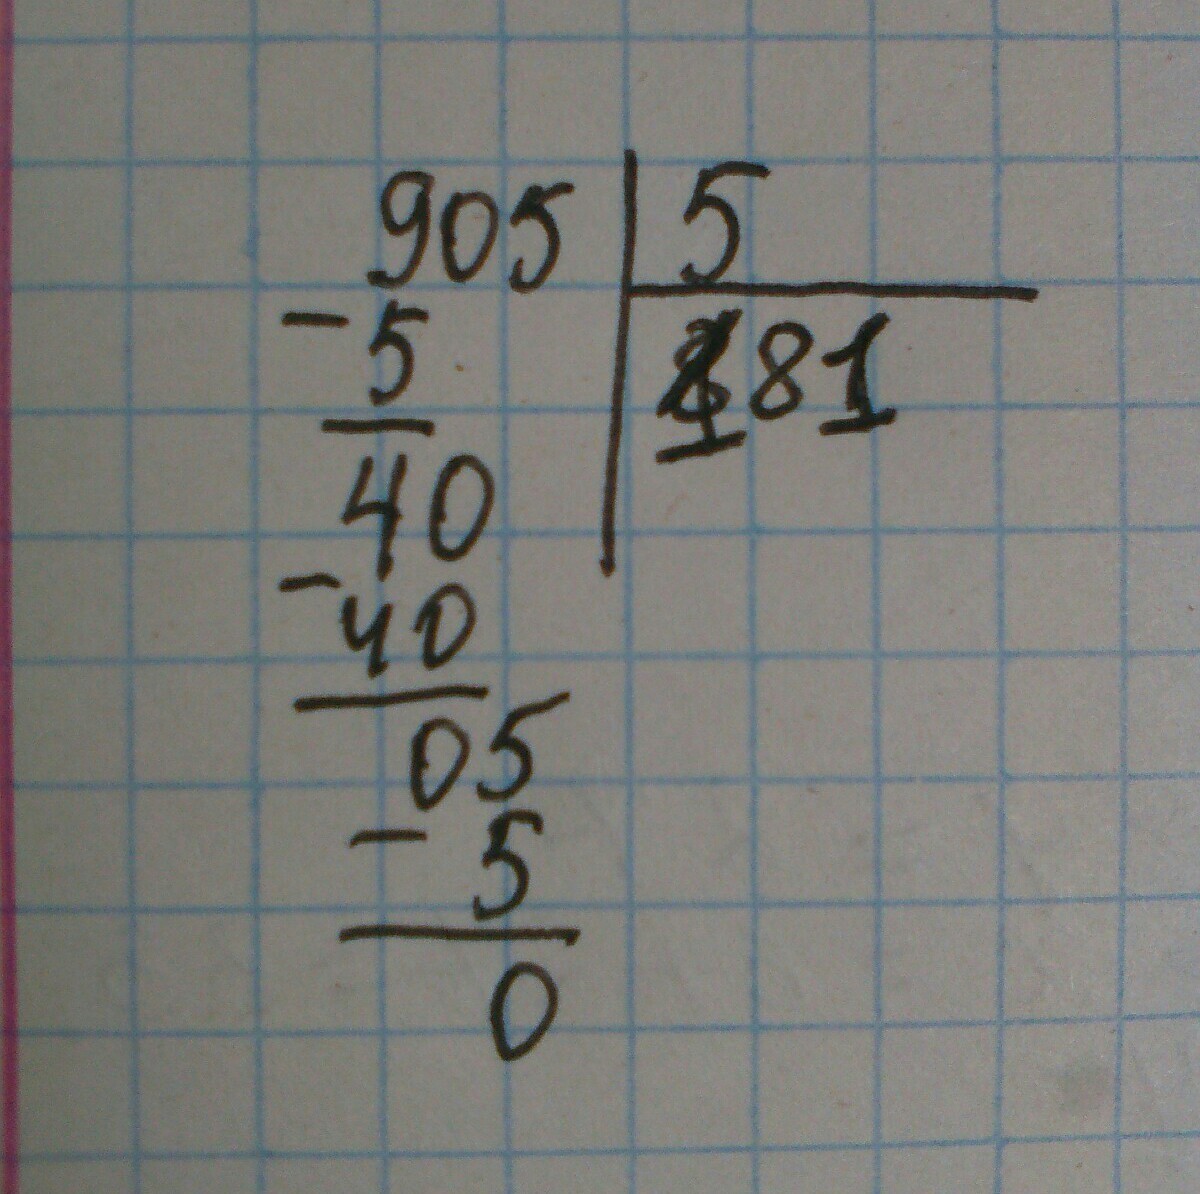 905 | 5
- 5 | 181
40
- 40
05
- 5
0